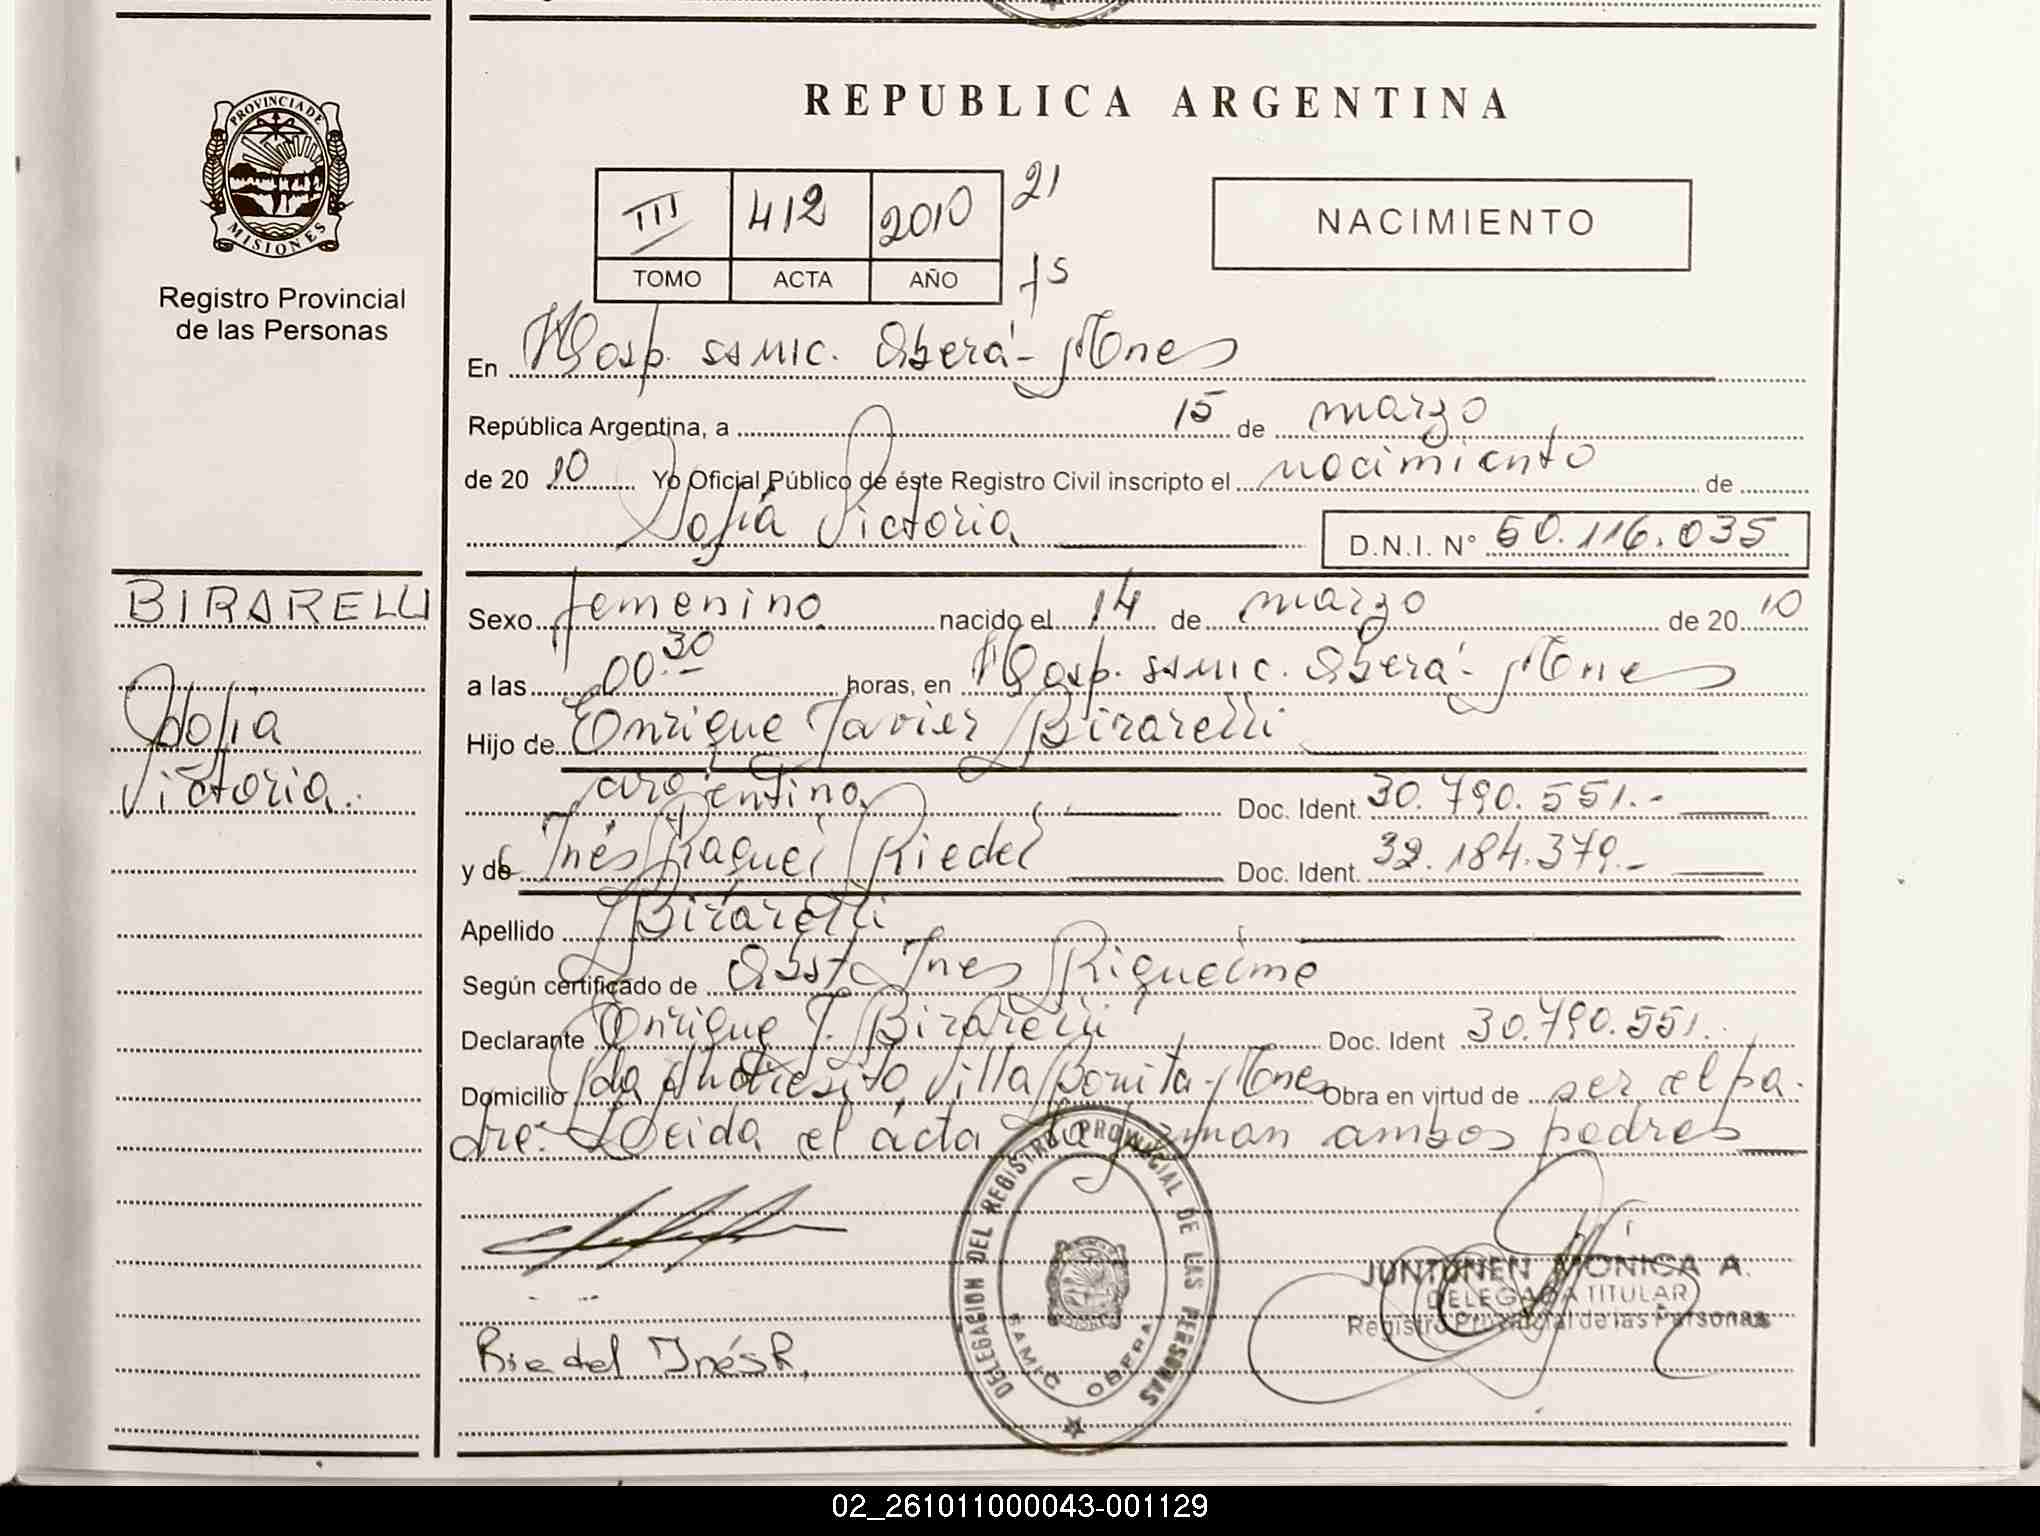 REPUBLICA ARGENTINA
PROVINCIA DE
MISIONES
Registro Provincial
de las Personas
III 412 2010 21
TOMO ACTA AÑO
NACIMIENTO
En Hosp. SAMIC. Oberá - Mnes
República Argentina, a 15 de marzo
de 20 10 Yo Oficial Público de éste Registro Civil inscripto el nacimiento de
Sofía Victoria D.N.I. N° 50.116.035
BIRARELLI
Sofia
Victoria.
Sexo femenino nacido el 14 de marzo de 20 10
a las 00.30 horas, en Hosp. SAMIC. Oberá - Mnes
Hijo de Enrique Javier Birarelli
argentino Doc. Ident. 30.790.551.-
y de Inés Raquel Riedel Doc. Ident. 32.184.379.-
Apellido Birarelli
Según certificado de Obst. Ines Riquelme
Declarante Enrique J. Birarelli Doc. Ident 30.790.551.
Domicilio Pdo Andresito, Villa Bonita - Mnes Obra en virtud de ser el pa-
dre: Leída el acta la firman ambos padres
DELEGACION DEL REGISTRO PROVINCIAL DE LAS PERSONAS
SAMIC OBERA
JUNTONEN MONICA A.
DELEGADA TITULAR
Registro Provincial de las Personas
Riedel Inés R.
02_261011000043-001129